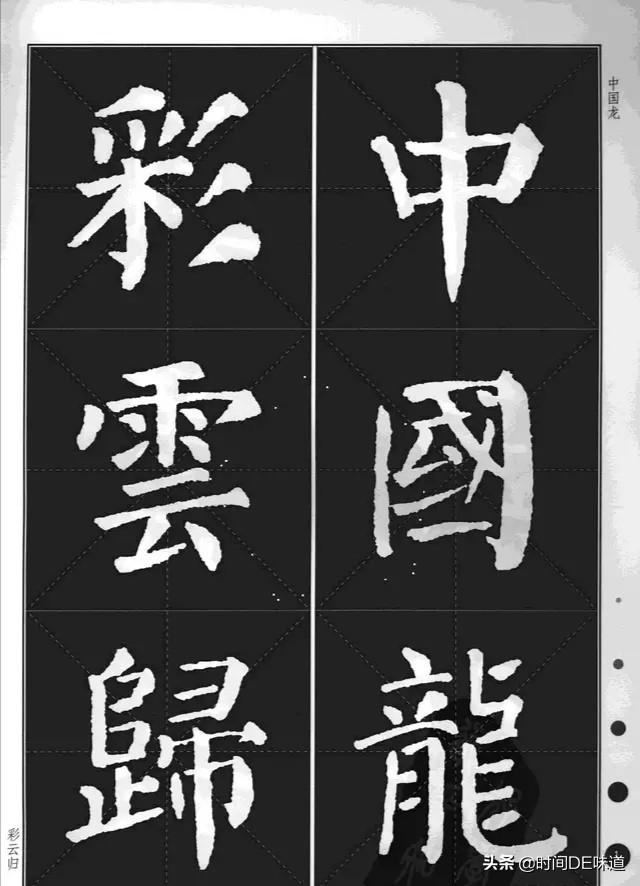 中國龍
彩雲歸
中国龙
彩云归
头条 @时间DE味道